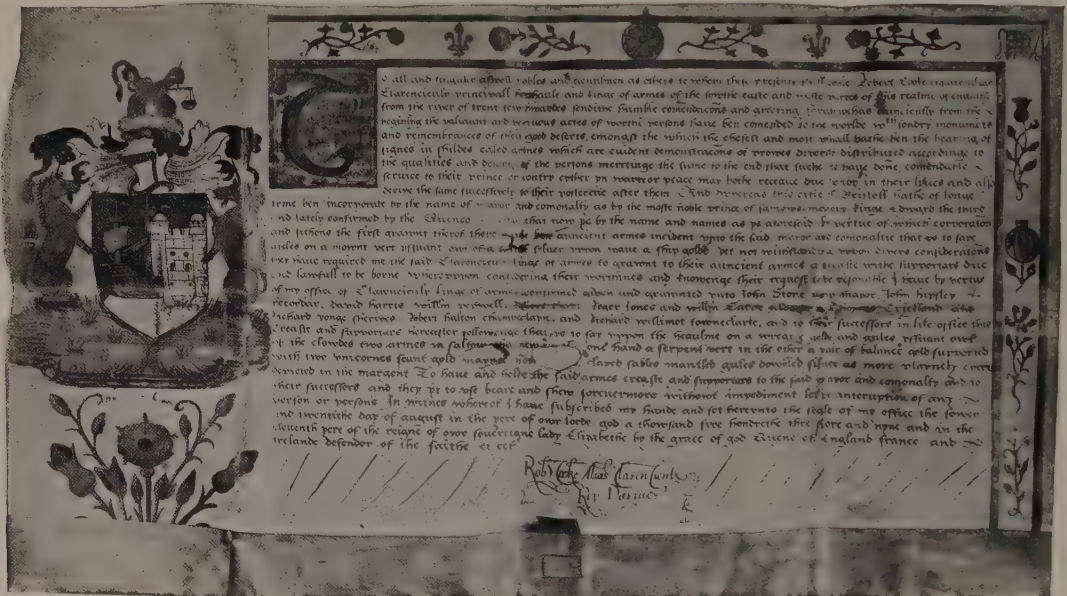 To all and singuler aswell nobles and gentilmen as others to whom these presents shall come Robert Cooke esquire alias
Clarencieulx principall heraulte and kinge of armes of the sowthe easte and weste partes of this realme of england
from the river of trent sowthwardes sendithe humble comendacons and greting forasmuchas aunciently from the
begining the valiaunt and vertuous actes of worthi persons have ben comended to the worlde with sondry monuments
and remembrances of their good deserts, emongst the which the chefest and most usuall hathe ben the bearing of
signes in shildes caled armes which are evident demonstracons of prowes diversly distributed accordinge to
the qualities and deserts of the persons meretinge the same to the end that suche as have done comendable
service to their prince or contry ether yn warre or peace may bothe receave due honor in their lyves and also
derive the same successively to their posteritie after them And whereas this citie of Bristoll hathe of longe
tyme ben incorporate by the name of mayor and comonalty as by the moste noble prince of famous memory kinge Edward the third
and lately confirmed by the Quenes that now ys by the name and names as ys aforesaid by vertue of which corporation
and sithens the first graunt therof there auncient armes incident unto the said mayor and comonaltie that ys to saye
gules on a mount vert yssuant out of a castle silver upon wave a ship golde yet not withstanding divers consideratons
they have required me the said Clarencieulx kinge of armes to graunt to their auncient armes a creaste withe supporters due
and lawfull to be borne wherewppon considering their worthines and knowenge their request to be resonable I have by vertue
of my office of Clarencieulx kinge of armes confirmed given and graunted unto John Stone now mayor, John hipsley
recordar, david harris willm Roger Jones and willm
Richard yonge sherives Robert halton chamberlayn, and Richard willimot towneclarke, and to their successors in like office this
Creast and supporters hereafter followenge that ys to say uppon the healme on a wreath golde and gules, yssuant owt
of the clowdes two armes in saltour one hand a serpent vert in the other a pair of balance gold supported
with two unicornes seant gold clayed sables mantled gules dowbled silver as more playnely
depicted in the margent To have and holde the said armes creaste and supporters to the said mayor and comonalty and to
their successors and they yt to use beare and shew forevermore without impediment lett or interuption of any
person or persons. In witnes whereof I have subscribed my hande and set hereunto the seale of my office the fower
and twentithe day of august in the yere of owre lorde god a thowsand five hondrethe thre score and nyne and in the
eleventh yere of the reigne of owre sovereigne lady Elizabethe by the grace of god Quene of England france and
Irelande defendor of the faithe et cet
Rob Cooke Alias Clarencieulx
Roy Darmes